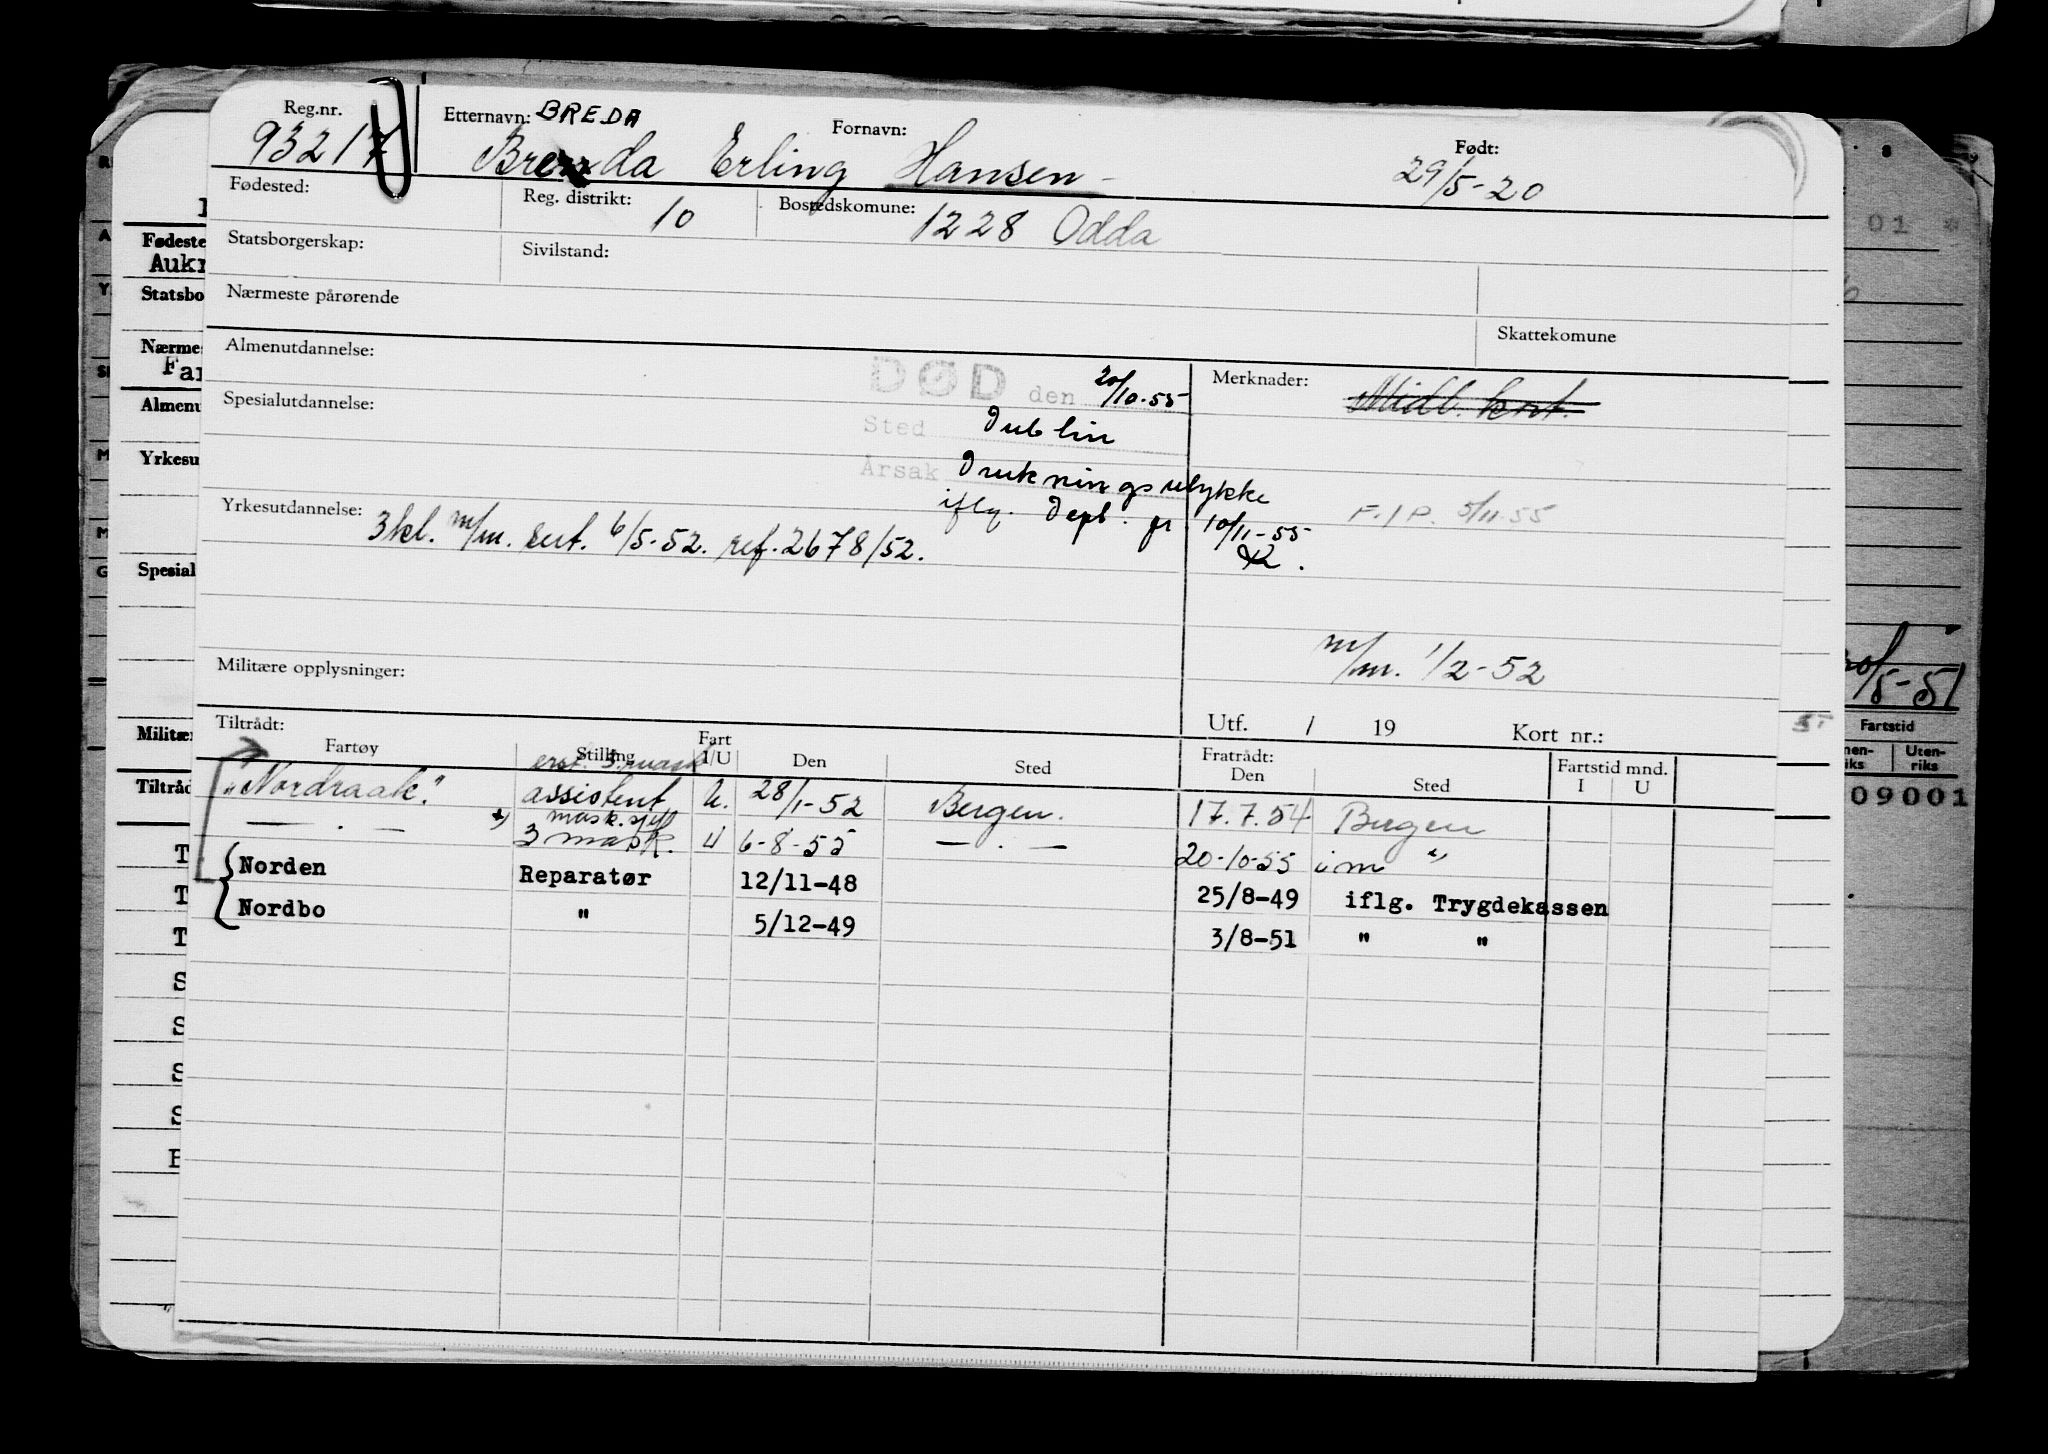 Reg.nr. Etternavn: BREDA Fornavn: Født:
93217 Brenda Erling Hansen - 29/5-20
Fødested: Reg. distrikt: 10 Bostedskomune: 1228 Odda
Statsborgerskap: Sivilstand:
Nærmeste pårørende
Skattekomune
Almenutdannelse: DØD den 20/10-55 Merknader: Midl. kort.
Spesialutdannelse: Sted Dublin
Årsak Drukningsulykke
iflg. Depl. pr 10/11-55 F.I.P. 5/11.55
Yrkesutdannelse: 3 kl. m/m. sert. 6/5-52. ref. 2678/52.
m/m. 1/2-52
Militære opplysninger:
Tiltrådt: Utf. / 19 Kort nr.:
Fartøy Stilling Fart I/U Den Sted Fratrådt: Den Sted Fartstid mnd. I U
erst. 3. mask
"Nordraak" assistent U. 28/1-52 Bergen. 17.7.54 Bergen
mask.sjef
— . — x) 3 mask. U 6-8-55 — . — 20-10-55 im x)
Norden Reparatør 12/11-48 25/8-49 iflg. Trygdekassen
Nordbo " 5/12-49 3/8-51 " "
Fødeste
Aukr
Statsbo
Nærmes
Far
Almenu
Yrkesu
Spesial
Militær
Tiltråd
T
T
T
S
S
S
S
01
20/5-51
Fartstid
Uten-
riks
09001